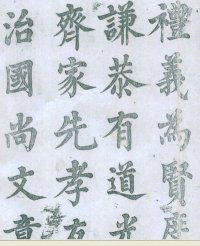 禮義為賢
謙恭有道
齊家先孝
治國尚文